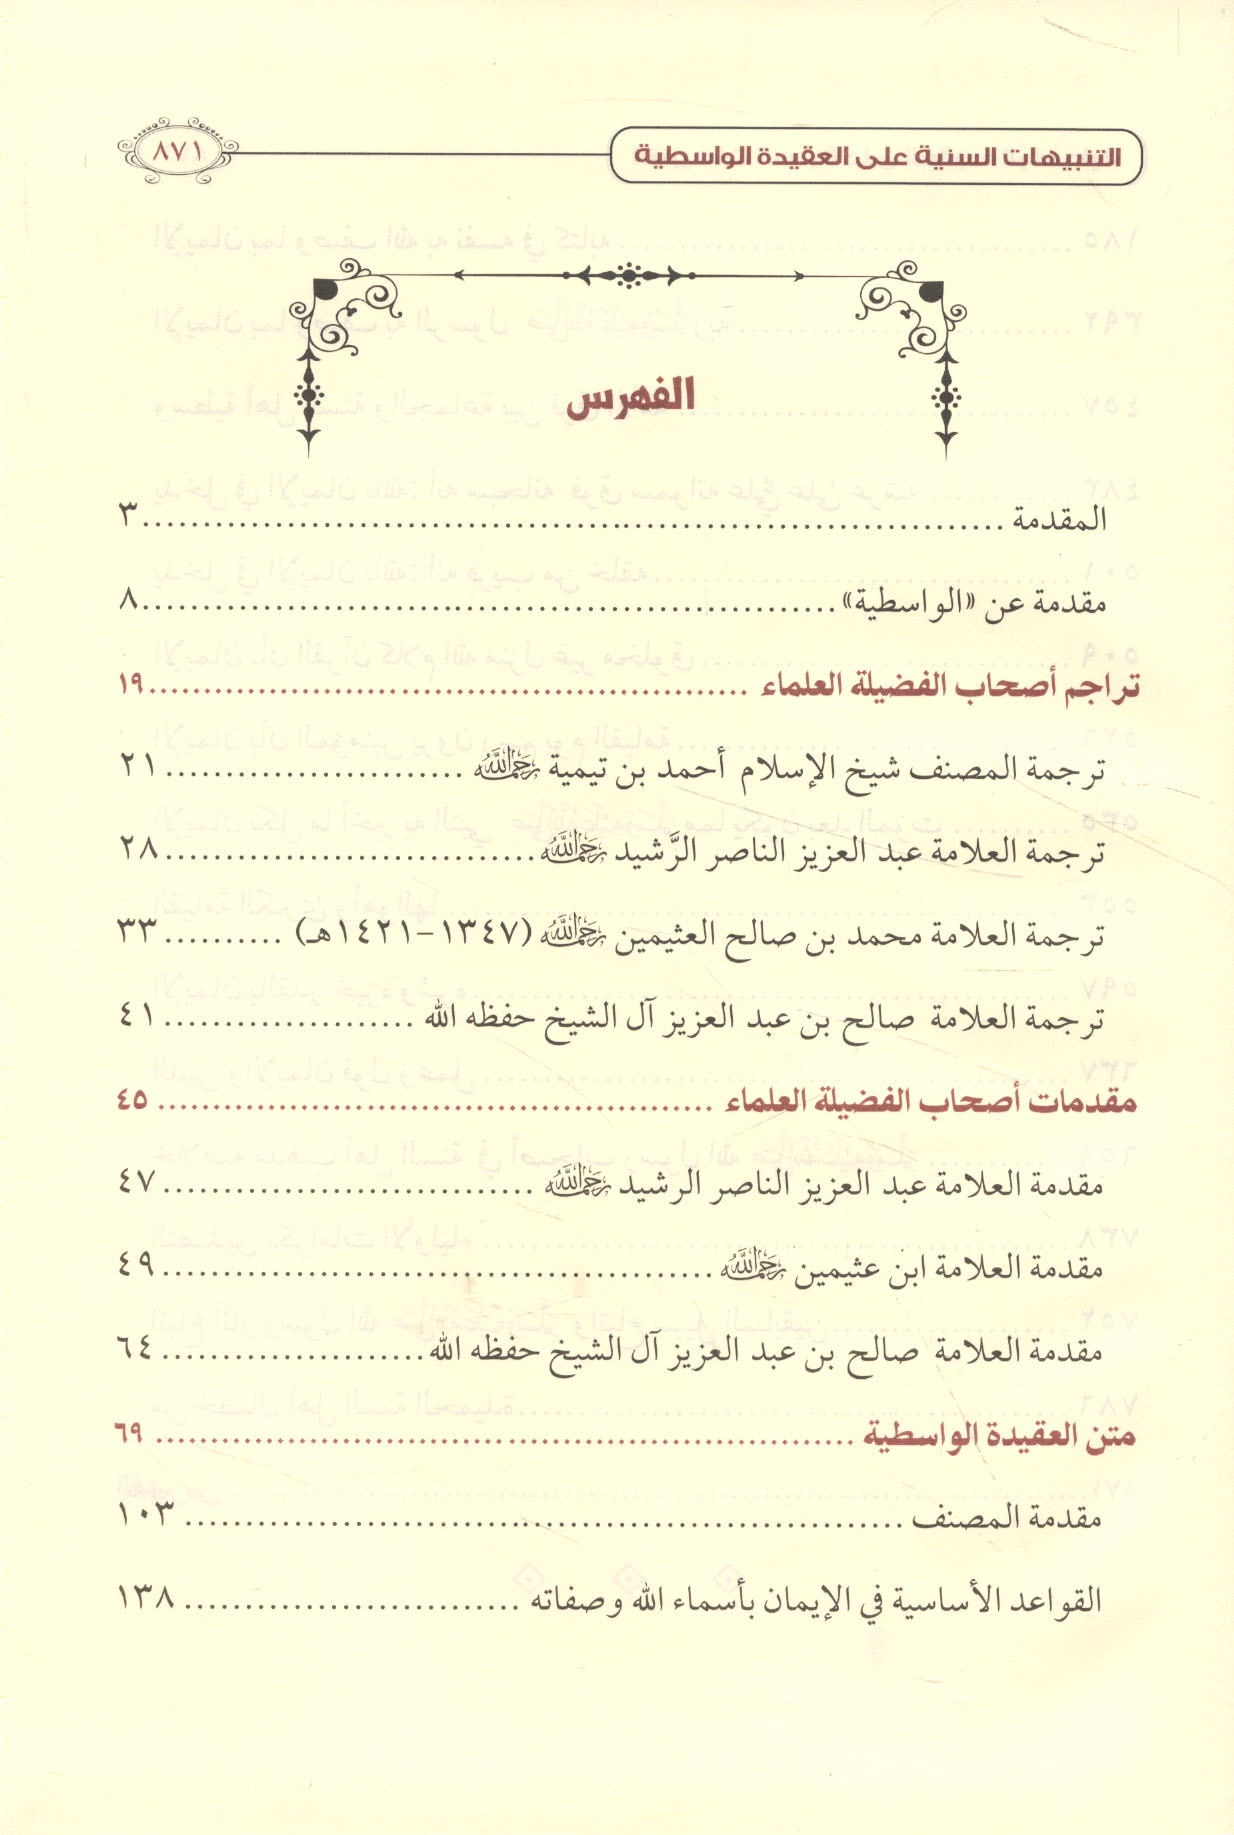 التنبيهات السنية على العقيدة الواسطية ٨٧١
الفهرس
المقدمة ................................................ ٣
مقدمة عن «الواسطية» ................................................ ٨
تراجم أصحاب الفضيلة العلماء ................................................ ١٩
ترجمة المصنف شيخ الإسلام أحمد بن تيمية رَحِمَهُ اللَّهُ ........................ ٢١
ترجمة العلامة عبد العزيز الناصر الرَّشيد رَحِمَهُ اللَّهُ ............................ ٢٨
ترجمة العلامة محمد بن صالح العثيمين رَحِمَهُ اللَّهُ (١٣٤٧-١٤٢١هـ) .......... ٣٣
ترجمة العلامة صالح بن عبد العزيز آل الشيخ حفظه الله .................... ٤١
مقدمات أصحاب الفضيلة العلماء ................................................ ٤٥
مقدمة العلامة عبد العزيز الناصر الرشيد رَحِمَهُ اللَّهُ ............................ ٤٧
مقدمة العلامة ابن عثيمين رَحِمَهُ اللَّهُ ........................................ ٤٩
مقدمة العلامة صالح بن عبد العزيز آل الشيخ حفظه الله .................... ٦٤
متن العقيدة الواسطية ................................................ ٦٩
مقدمة المصنف ................................................ ١٠٣
القواعد الأساسية في الإيمان بأسماء الله وصفاته ............................ ١٣٨